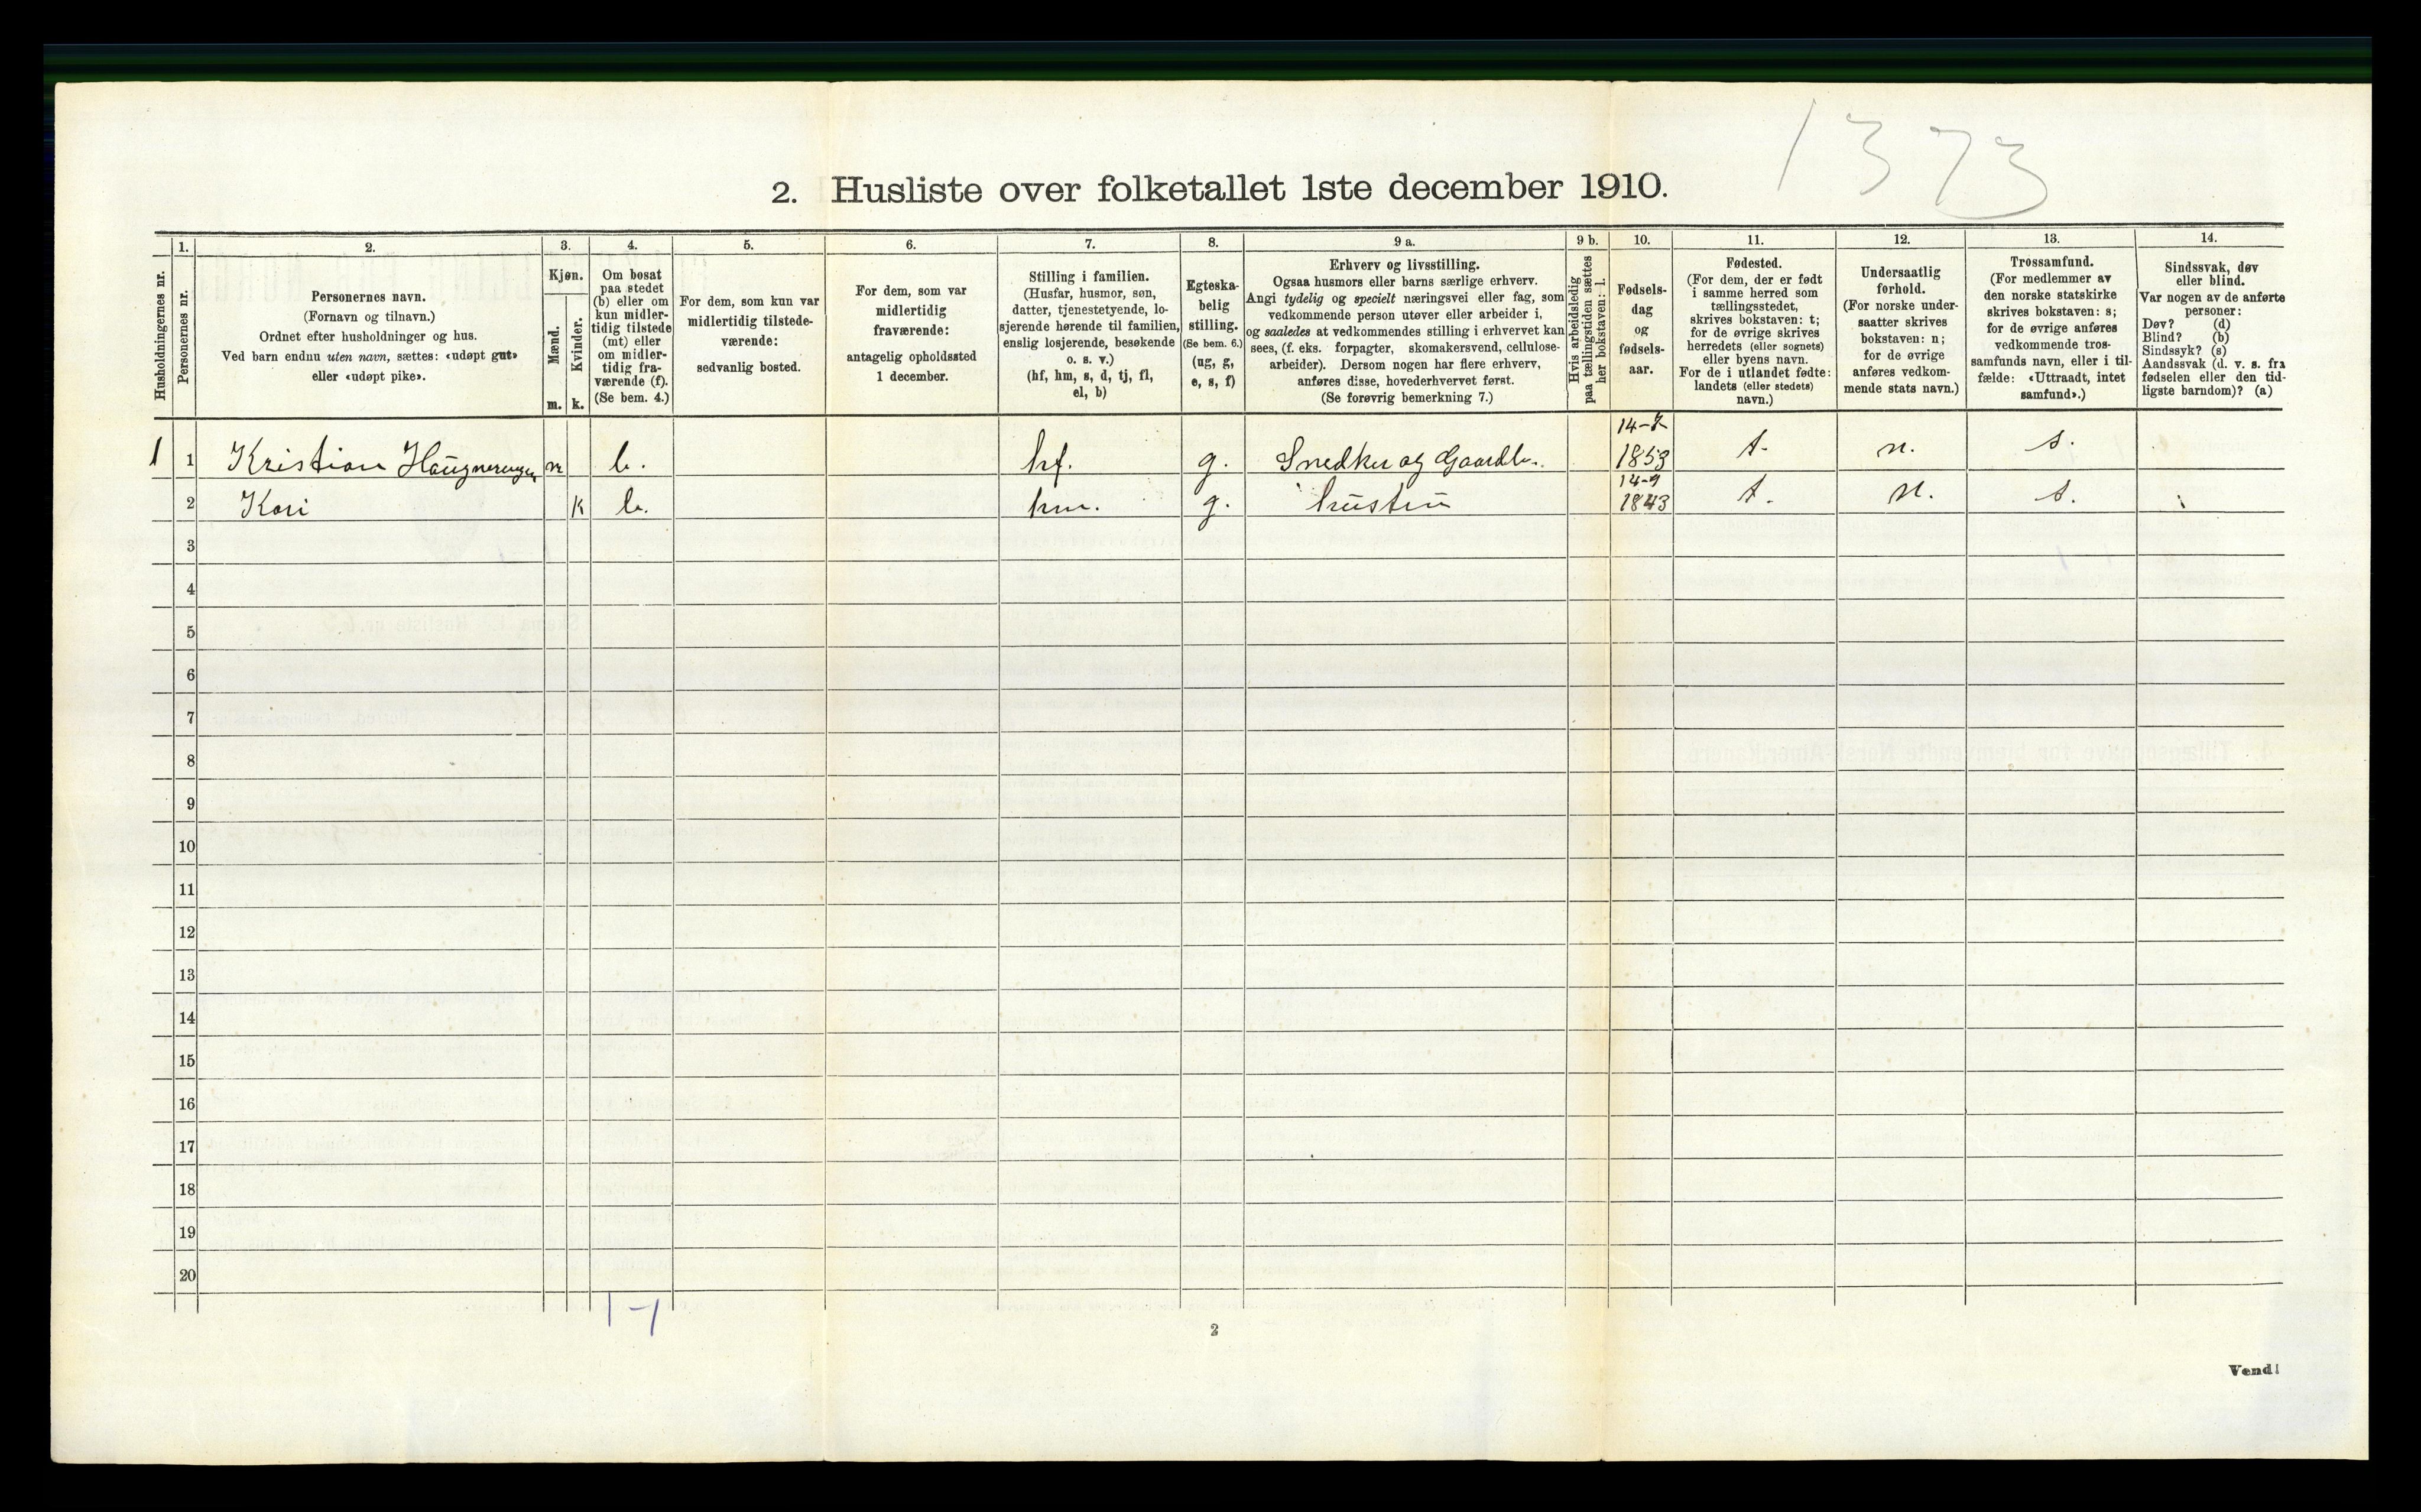 1373
2. Husliste over folketallet 1ste december 1910.
Husholdningernes nr.
1.
Personernes nr.
2.
Personernes navn.
(Fornavn og tilnavn.)
Ordnet efter husholdninger og hus.
Ved barn endnu uten navn, sættes: «udøpt gut»
eller «udøpt pike».
3.
Kjøn.
Mænd.
Kvinder.
m. k.
4.
Om bosat
paa stedet
(b) eller om
kun midler-
tidig tilstede
(mt) eller
om midler-
tidig fra-
værende (f).
(Se bem. 4.)
5.
For dem, som kun var
midlertidig tilstede-
værende:
sedvanlig bosted.
6.
For dem, som var
midlertidig
fraværende:
antagelig opholdssted
1 december.
7.
Stilling i familien.
(Husfar, husmor, søn,
datter, tjenestetyende, lo-
sjerende hørende til familien,
enslig losjerende, besøkende
o. s. v.)
(hf, hm, s, d, tj, fl,
el, b)
8.
Egteska-
belig
stilling.
(Se bem. 6.)
(ug, g,
e, s, f)
9 a.
Erhverv og livsstilling.
Ogsaa husmors eller barns særlige erhverv.
Angi tydelig og specielt næringsvei eller fag, som
vedkommende person utøver eller arbeider i,
og saaledes at vedkommendes stilling i erhvervet kan
sees, (f. eks. forpagter, skomakersvend, cellulose-
arbeider). Dersom nogen har flere erhverv,
anføres disse, hovederhvervet først.
(Se forøvrig bemerkning 7.)
9 b.
Hvis arbeidsledig
paa tællingstiden sættes
her bokstaven: l.
10.
Fødsels-
dag
og
fødsels-
aar.
11.
Fødested.
(For dem, der er født
i samme herred som
tællingsstedet,
skrives bokstaven: t;
for de øvrige skrives
herredets (eller sognets)
eller byens navn.
For de i utlandet fødte:
landets (eller stedets)
navn.)
12.
Undersaatlig
forhold.
(For norske under-
saatter skrives
bokstaven: n;
for de øvrige
anføres vedkom-
mende stats navn.)
13.
Trossamfund.
(For medlemmer av
den norske statskirke
skrives bokstaven: s;
for de øvrige anføres
vedkommende tros-
samfunds navn, eller i til-
fælde: «Uttraadt, intet
samfund».)
14.
Sindssvak, døv
eller blind.
Var nogen av de anførte
personer:
Døv? (d)
Blind? (b)
Sindssyk? (s)
Aandssvak (d. v. s. fra
fødselen eller den tid-
ligste barndom)? (a)
14-7
1 1 Kristian m b. hf. g. Snedker og Gaardb. 1853 t. n. s.
14-9
2 Kari k b. hm. g. hustru 1843 t. n. s.
3
4
5
6
7
8
9
10
11
12
13
14
15
16
17
18
19
20
1-1
2
Vend!